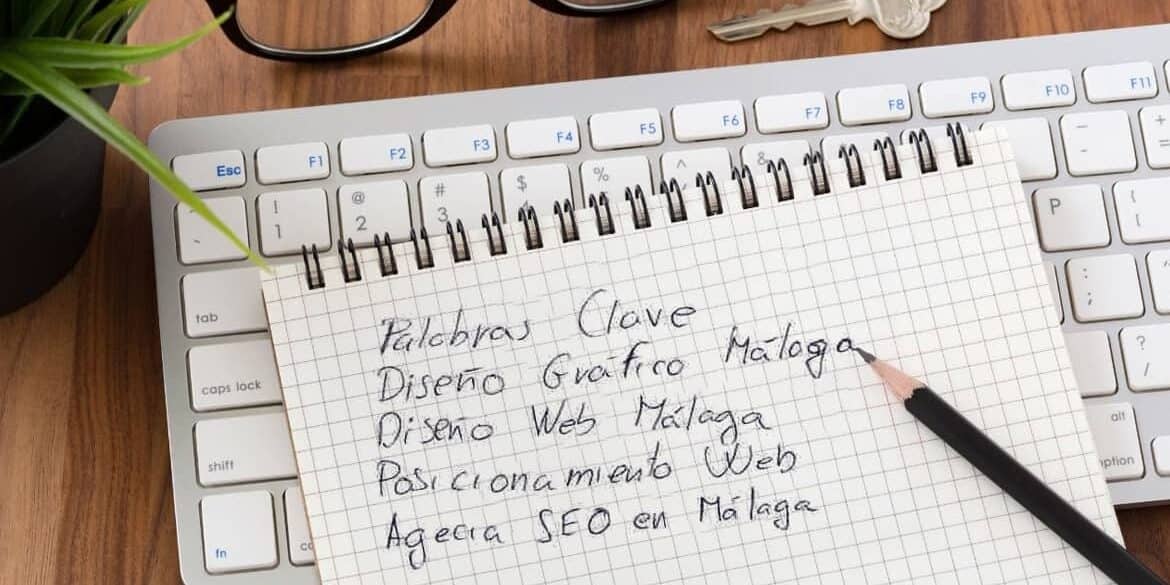 Esc F1 F2 F3 F4 F5 F6 F7 F8 F9 F10 F11
! 1 @ 2 # 3 $ 4 % ^ & _ - + =
tab P { [
caps lock : ;
shift ? /
fn alt option
Palabras Clave
Diseño Gráfico Málaga
Diseño Web Málaga
Posicionamiento Web
Agecia SEO en Málaga